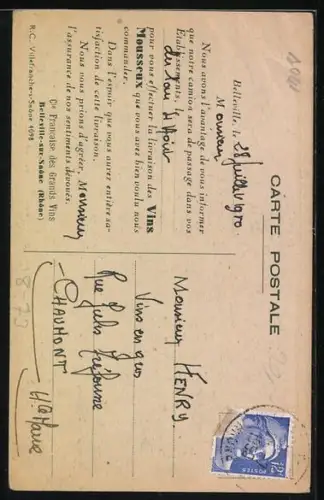 CARTE POSTALE
Belleville, le 28 Juillet 1950
Monsieur
Nous avons l'avantage de vous informer
que notre camion sera de passage dans vos
Établissements, l
du 1au 4 Août
pour vous effectuer la livraison des Vins
Mousseux que vous avez bien voulu nous
commander.
Dans l'espoir que vous aurez entière sa-
tisfaction de cette livraison,
Nous vous prions d'agréer, Monsieur
l'assurance de nos sentiments dévoués.
Cie Française des Grands Vins
Belleville-sur-Saône (Rhône)
R. C. Villefranche-s/Saône 4098
Monsieur HENRY.
Vins en gros
Rue Jules Tréfousse
CHAUMONT
Hte Marne
12F
POSTES